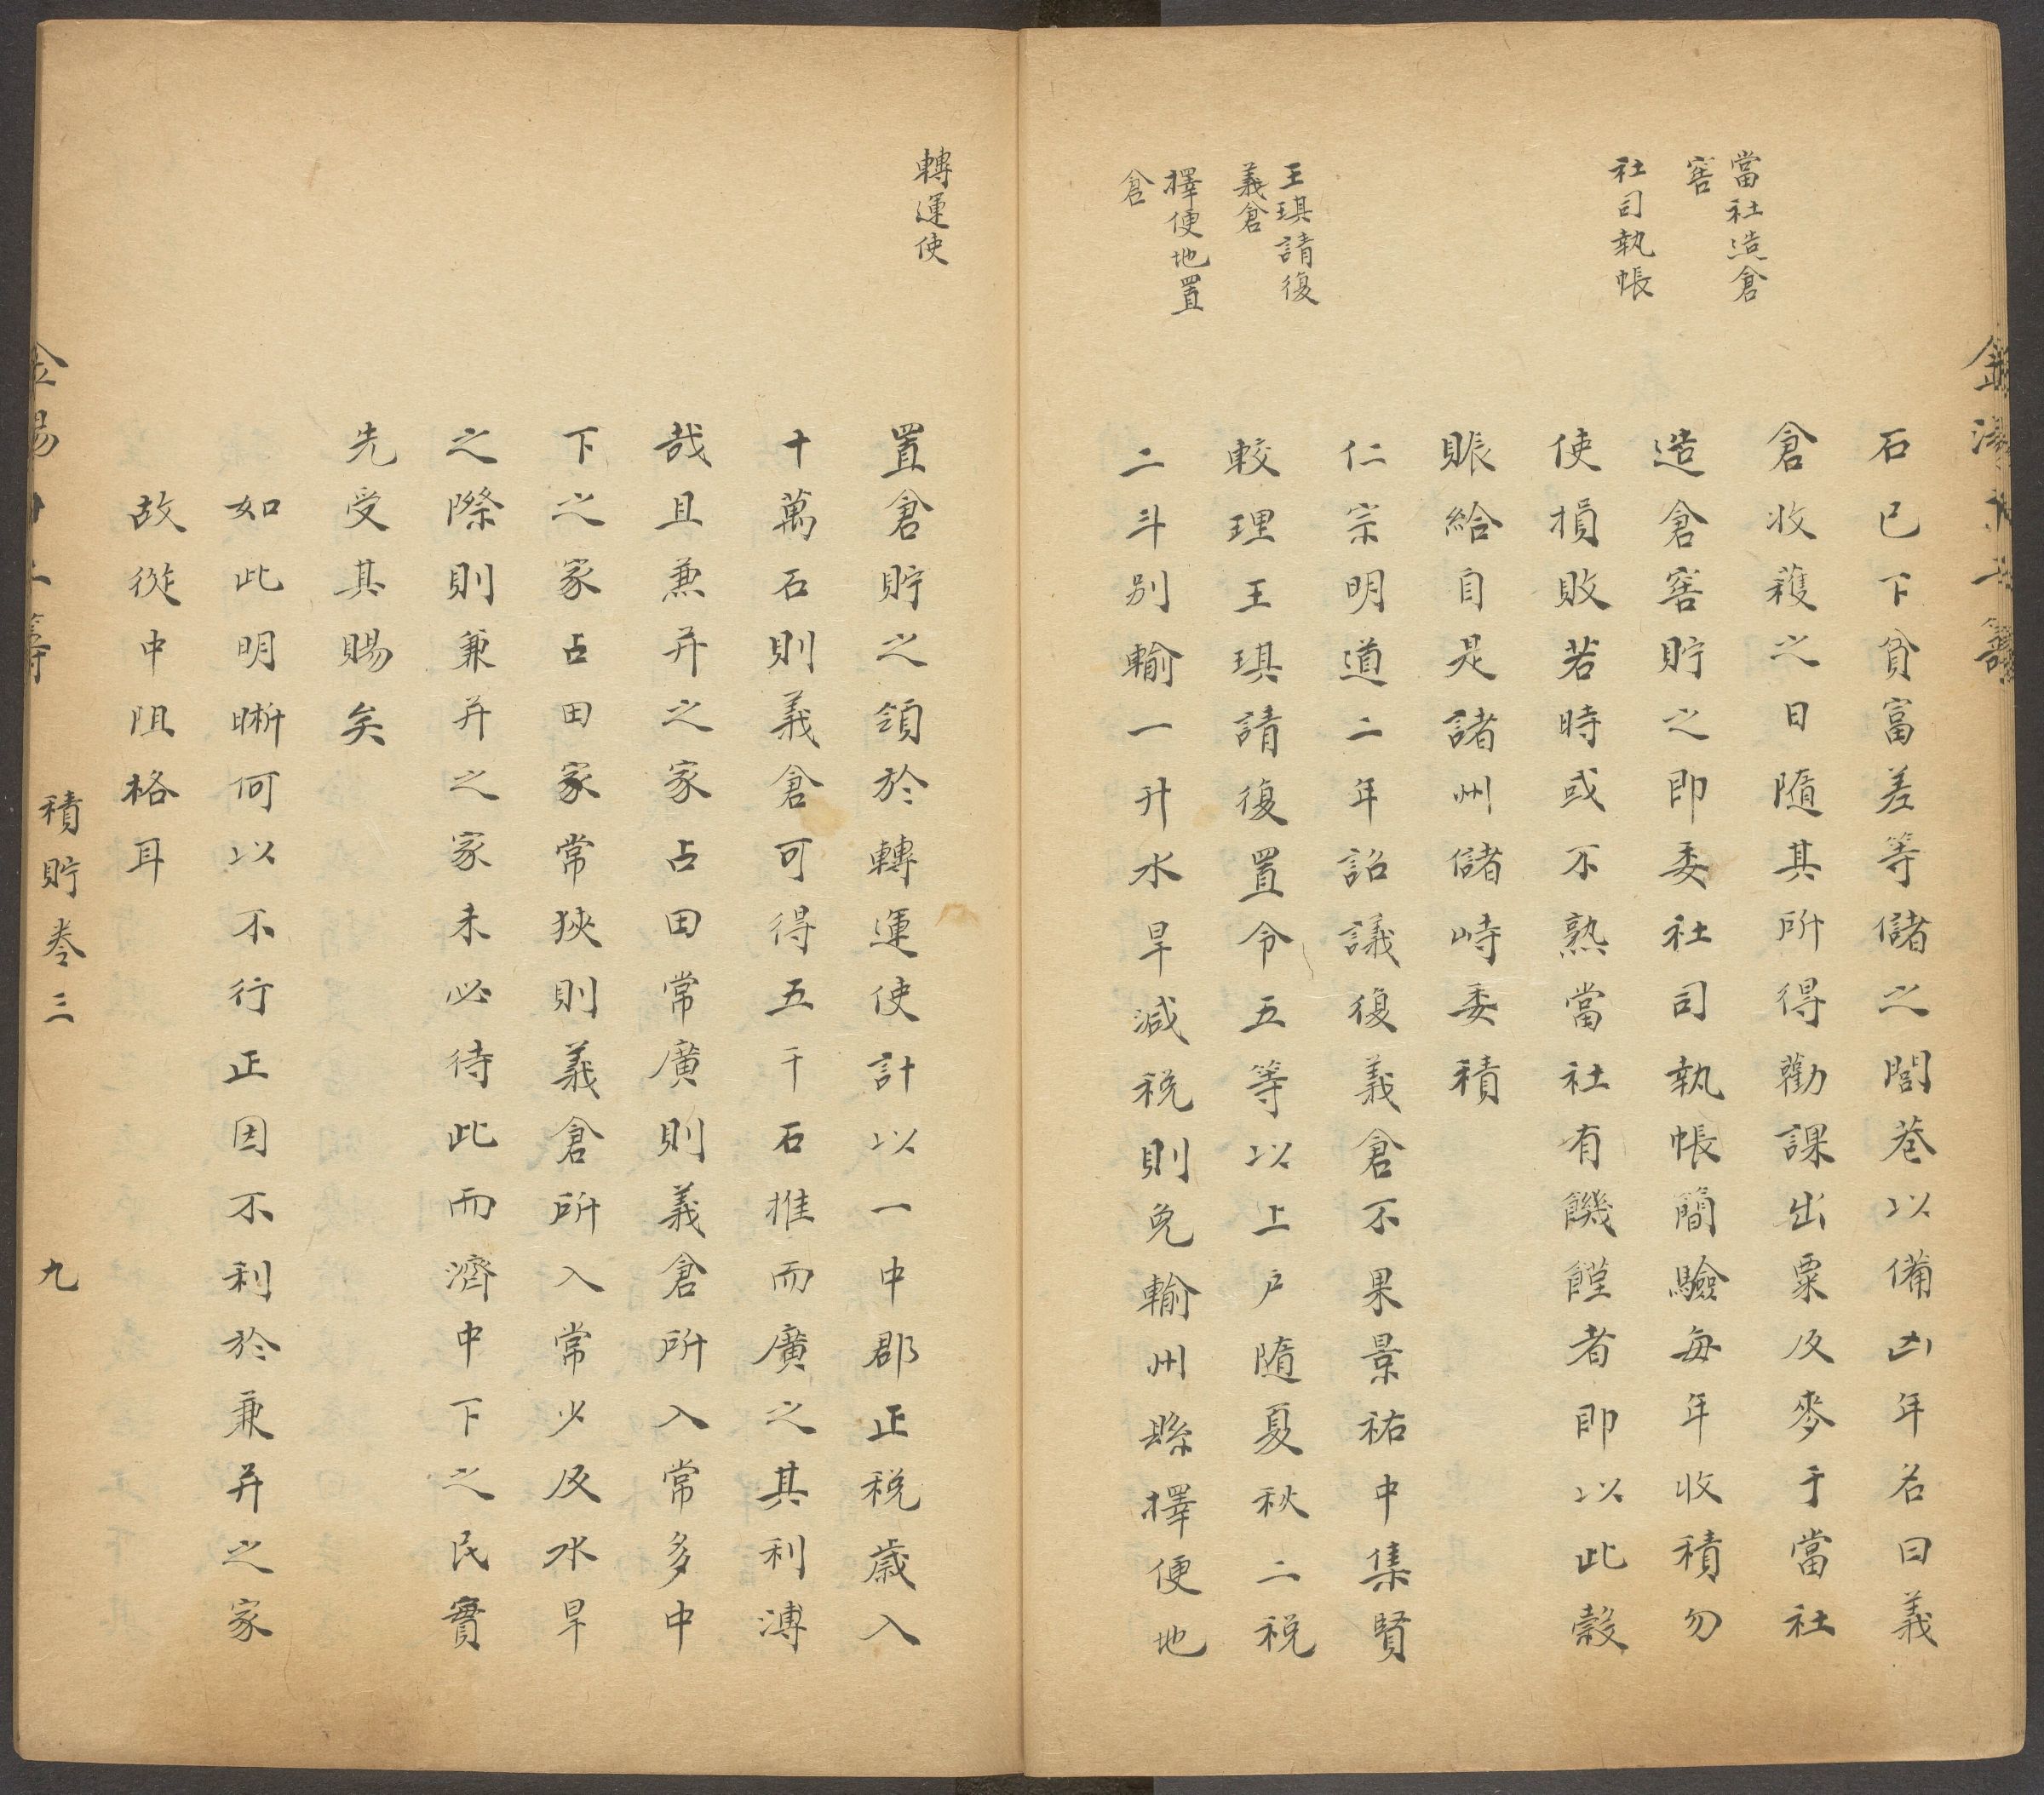 當社造倉
窖
社司執帳
王琪請復
義倉
擇便地置
倉
石已下貧富差等儲之閭巷以備凶年名曰義
倉收穫之日隨其所得勸課出粟及麥于當社
造倉窖貯之即委社司執帳簡驗每年收積勿
使損敗若時或不熟當社有饑饉者即以此穀
賑給自是諸州儲峙委積
仁宗明道二年詔議復義倉不果景祐中集賢
較理王琪請復置令五等以上戶隨夏秋二税
二斗别輸一升水旱減税則免輸州縣擇便地
轉運使
置倉貯之領於轉運使計以一中郡正税歲入
十萬石則義倉可得五千石推而廣之其利溥
哉且兼并之家占田常廣則義倉所入常多中
下之家占田家常狹則義倉所入常少及水旱
之際則兼并之家未必待此而濟中下之民實
先受其賜矣
如此明晰何以不行正因不利於兼并之家
故從中阻格耳
積貯卷三
九